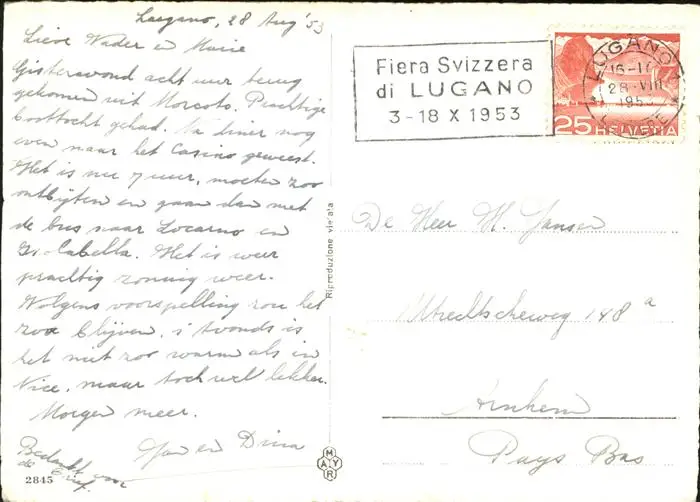 Lugano, 28 Aug '53
Lieve Vader en Marie
Gisteravond acht uur terug
gekomen uit Morcote. Prachtige
boottocht gehad. Na diner nog
even naar het Casino geweest.
Het is nu 7 uur, moeten zoo
ontbijten en gaan dan met
de bus naar Locarno en
Isabella. Het is weer
prachtig zonnig weer.
Volgens voorspelling zou het
zoo blijven, 's avonds is
het niet zoo warm als in
Nice, maar toch wel lekker.
Morgen meer.
Jan en Dina
Bedankt voor
de brief.
2845
Riproduzione vietata
MAYR
Fiera Svizzera
di LUGANO
3-18 X 1953
LUGANO 1
28 VIII
1953
25 HELVETIA
De Heer H. Jansen
Utrechtscheweg 148a
Arnhem
Pays Bas